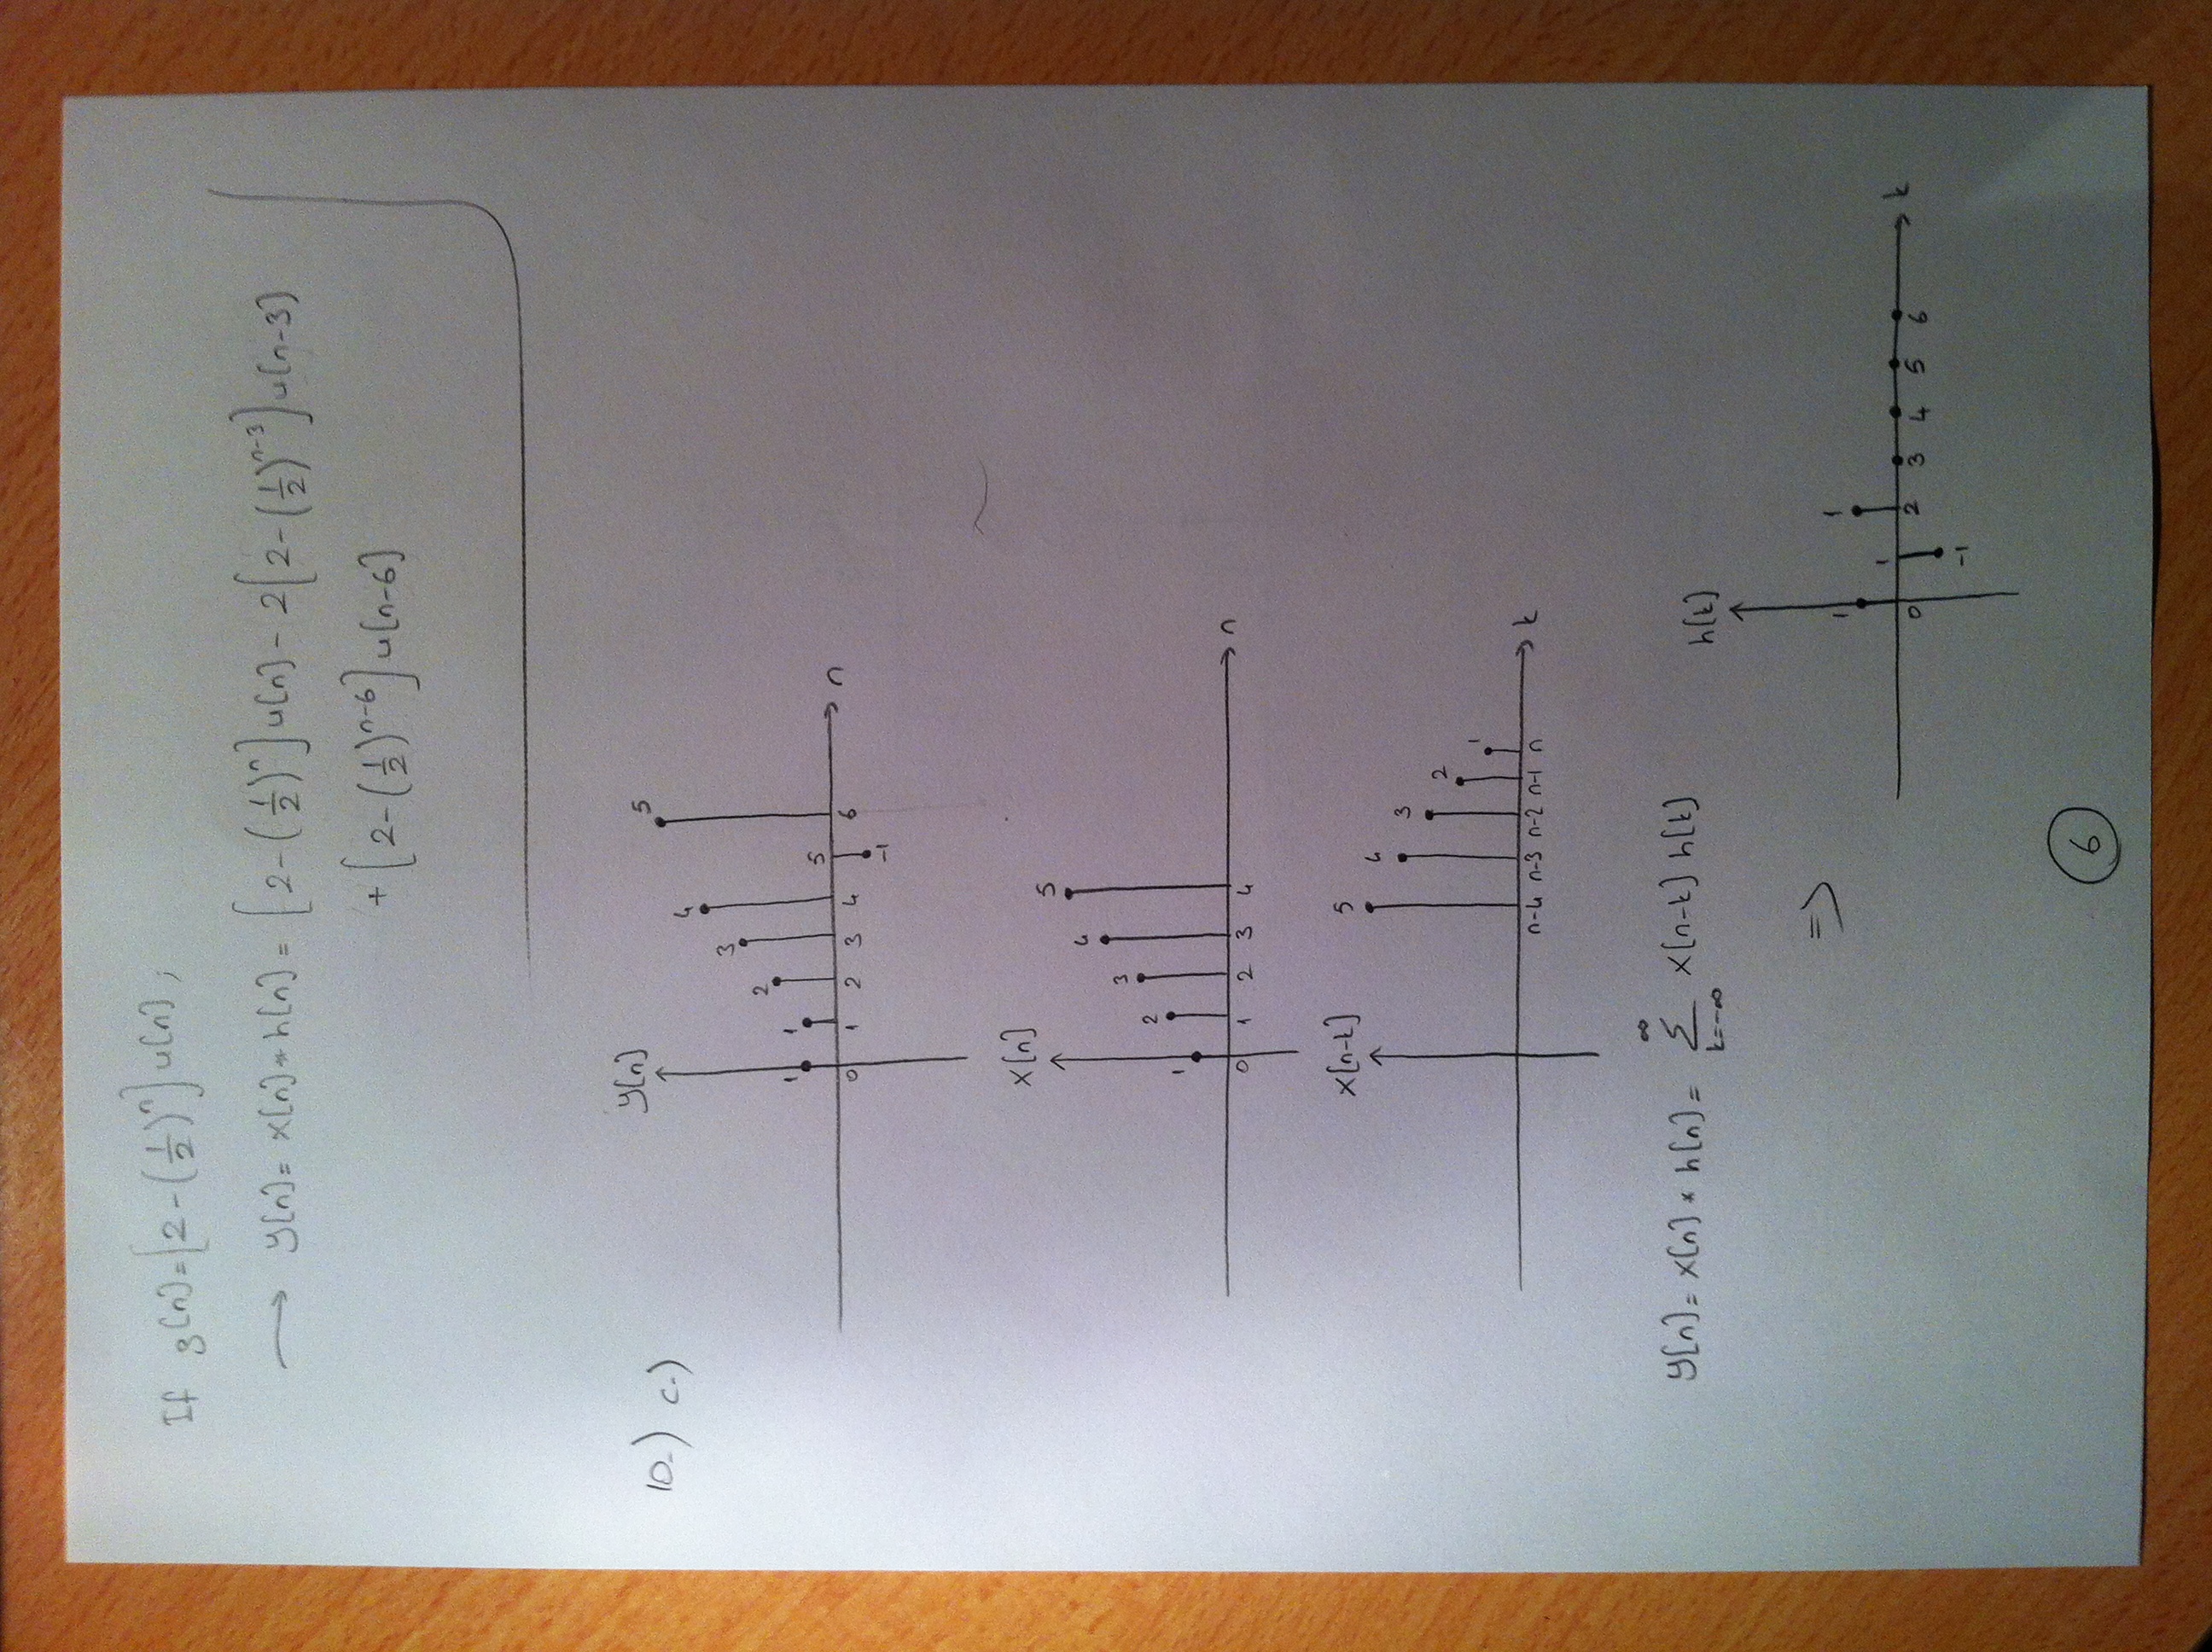 If g[n]=[2-(1/2)^n]u[n];
→ y[n]= x[n]*h[n]= [2-(1/2)^n]u[n]-2[2-(1/2)^{n-3}]u[n-3]
+[2-(1/2)^{n-6}]u[n-6]
10.) c.)
y[n]
1 1 2 3 4 5
0 1 2 3 4 5 6 n
-1
x[n]
1 2 3 4 5
0 1 2 3 4 n
x[n-k]
5 4 3 2 1
n-4 n-3 n-2 n-1 n k
y[n]= x[n]*h[n]= ∞ Σ k=-∞ x[n-k] h[k]
h[k]
=>
1 1
0 1 2 3 4 5 6 k
-1
6